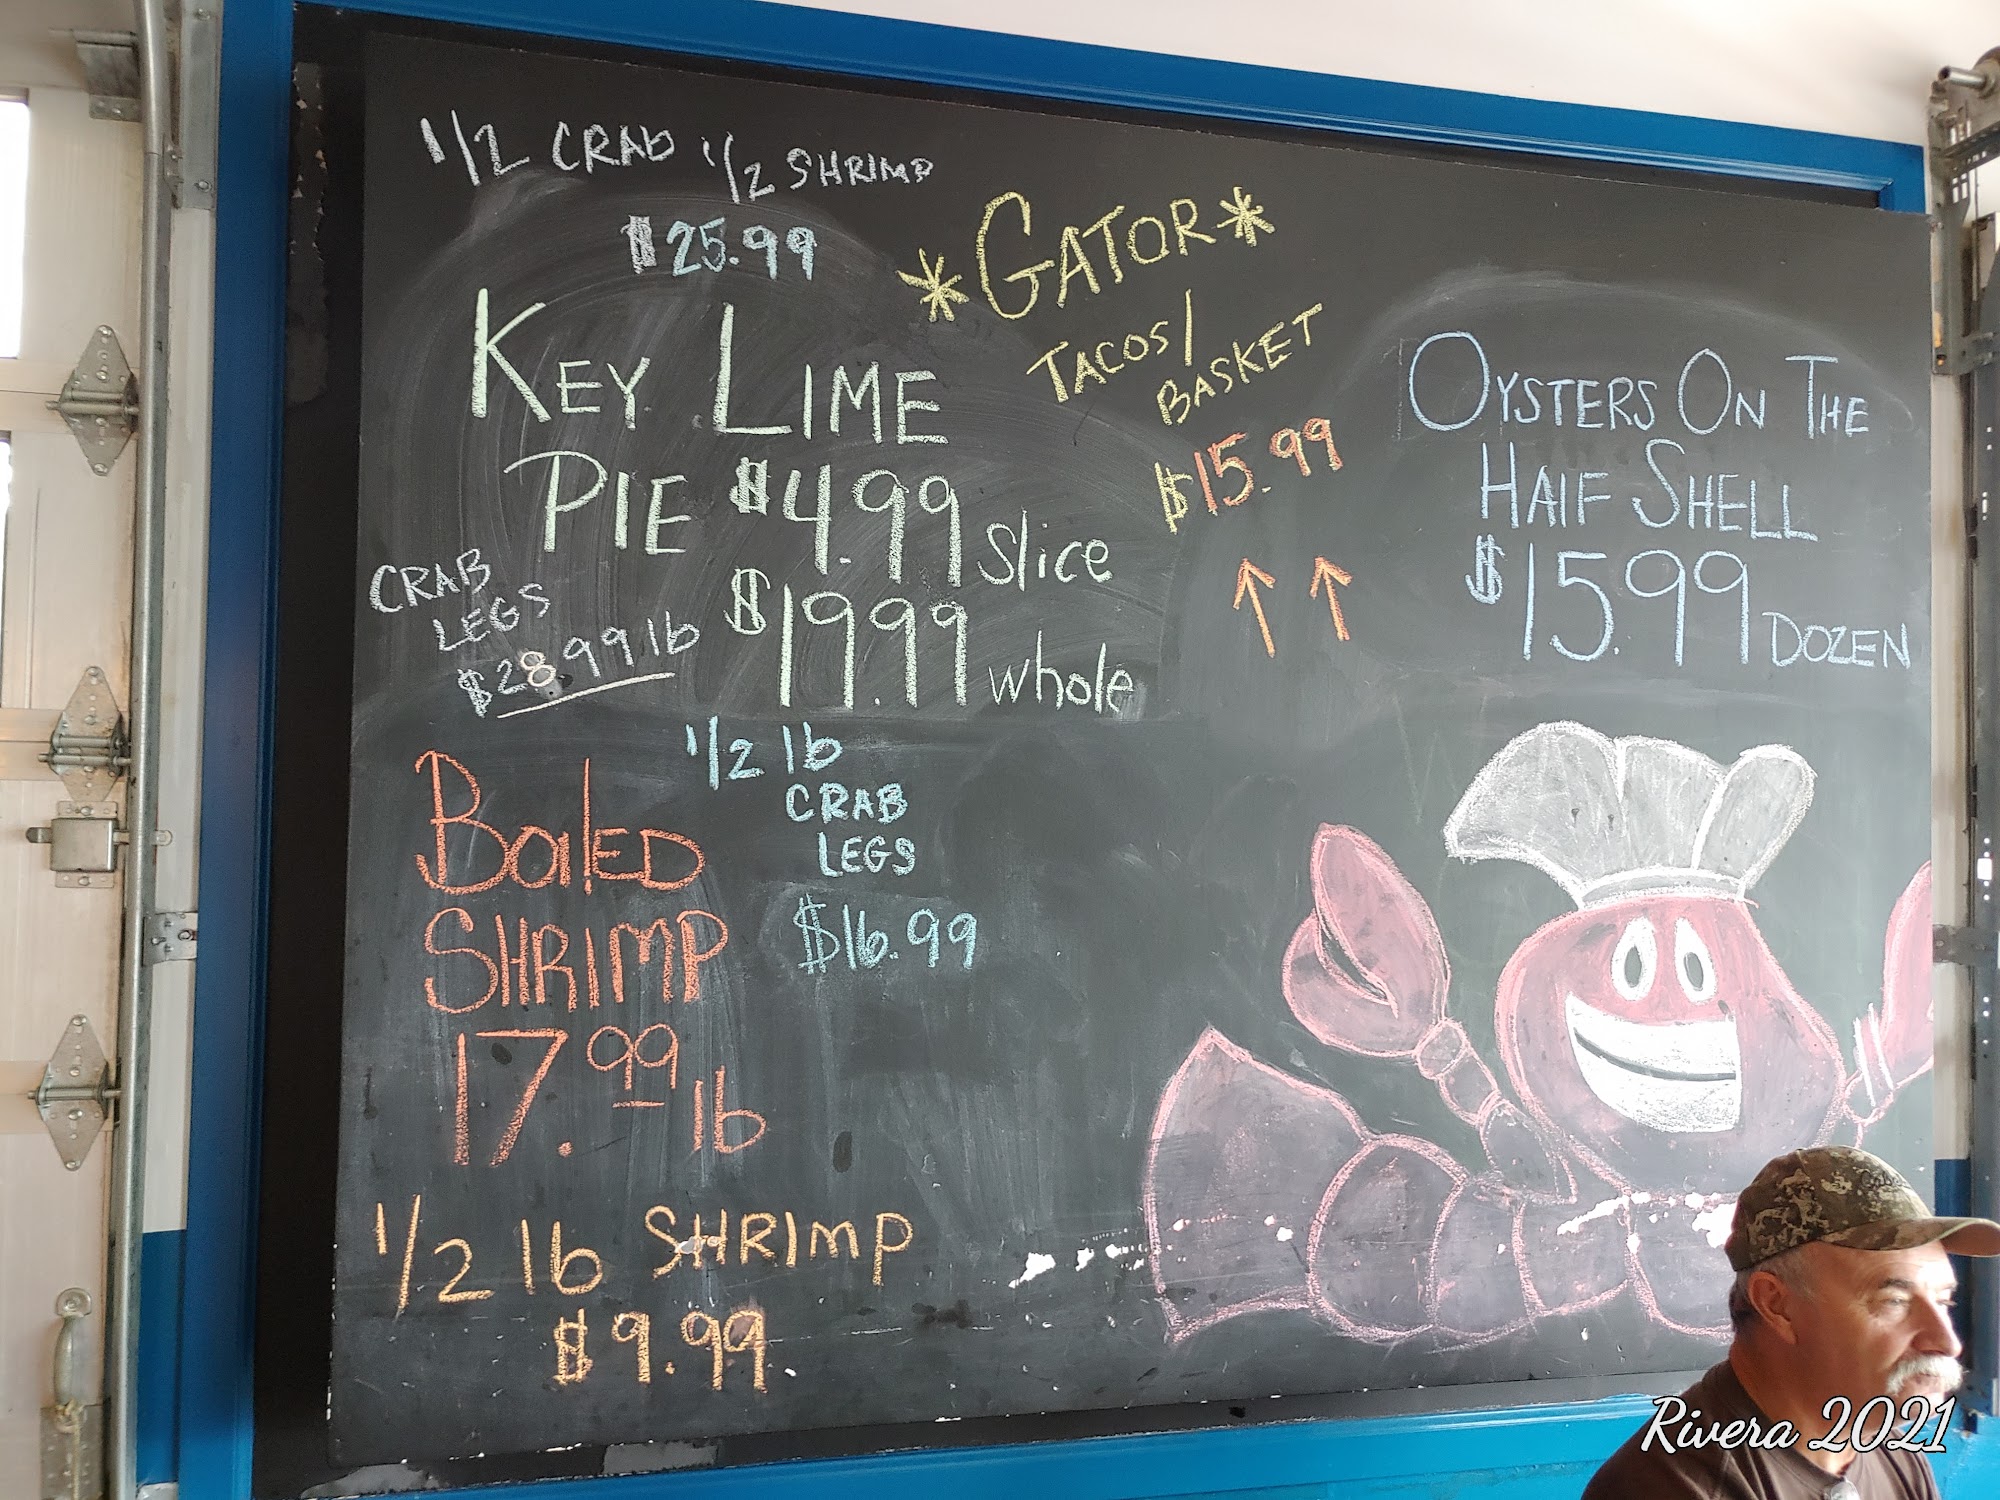 1/2 CRAB 1/2 SHRIMP
$25.99
*GATOR*
TACOS/
BASKET
$15.99
KEY LIME
PIE $4.99 Slice
$19.99 whole
OYSTERS ON THE
HALF SHELL
$15.99 DOZEN
CRAB
LEGS
$28.99 lb
1/2 lb
CRAB
LEGS
$16.99
BOILED
SHRIMP
17.99 lb
1/2 lb SHRIMP
$9.99
Rivera 2021